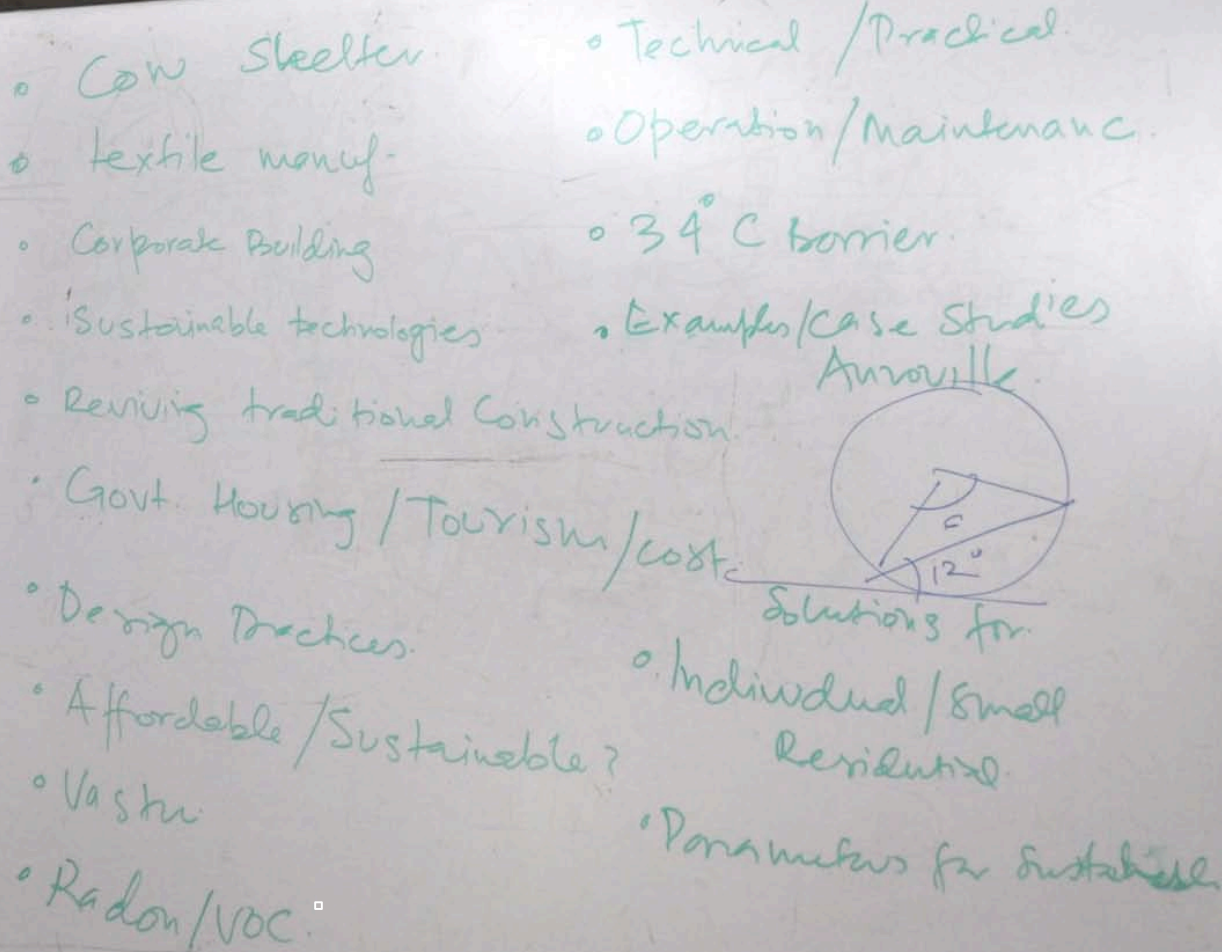 • Cow Sheelter.
• textile manuf-
• Corporate Building
• Sustainable technologies
• Reviving traditional Construction
• Govt. Housing / Tourism / cost
• Design Practices.
• Affordable / Sustainable ?
• Vastu
• Radon / VOC.
• Technical / Practical.
• Operation / Maintenanc.
• 34° C Barrier.
• Examples / Case Studies
Auroville.
c
12°
Solutions for.
• Individual / Small
Residential.
• Parameters for